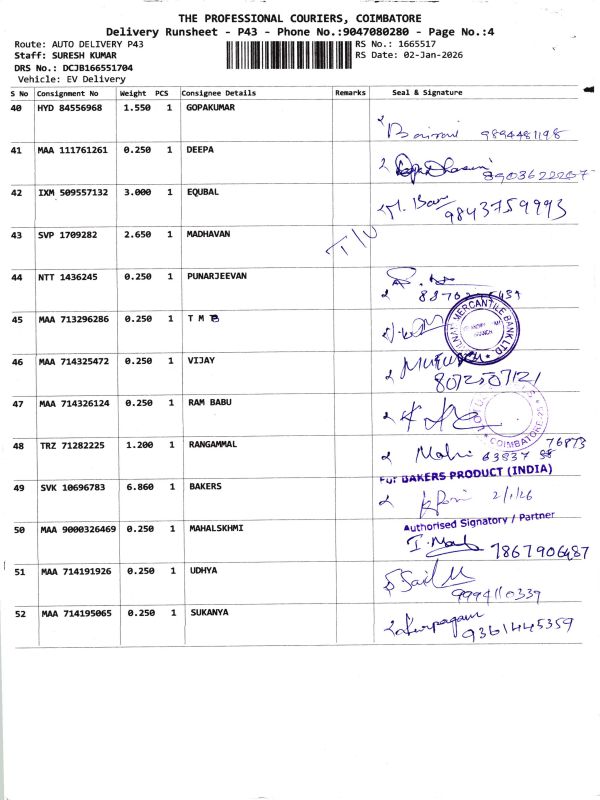 THE PROFESSIONAL COURIERS, COIMBATORE
Delivery Runsheet - P43 - Phone No.:9047080280 - Page No.:4
Route: AUTO DELIVERY P43
RS No.: 1665517
Staff: SURESH KUMAR
RS Date: 02-Jan-2026
DRS No.: DCJB166551704
Vehicle: EV Delivery
S No Consignment No Weight PCS Consignee Details Remarks Seal & Signature
40 HYD 84556968 1.550 1 GOPAKUMAR
9894481198
41 MAA 111761261 0.250 1 DEEPA
8903622207
42 IXM 509557132 3.000 1 EQUBAL
9843759993
43 SVP 1709282 2.650 1 MADHAVAN
44 NTT 1436245 0.250 1 PUNARJEEVAN
45 MAA 713296286 0.250 1 T M B
MERCANTILE BANK LTD.
BRANCH
46 MAA 714325472 0.250 1 VIJAY
8072507121
47 MAA 714326124 0.250 1 RAM BABU
COIMBATORE
48 TRZ 71282225 1.200 1 RANGAMMAL
Mohi 63837
76873
For BAKERS PRODUCT (INDIA)
49 SVK 10696783 6.860 1 BAKERS
2/1/26
Authorised Signatory / Partner
50 MAA 9000326469 0.250 1 MAHALSKHMI
7867906487
51 MAA 714191926 0.250 1 UDHYA
9994110339
52 MAA 714195065 0.250 1 SUKANYA
9361445359